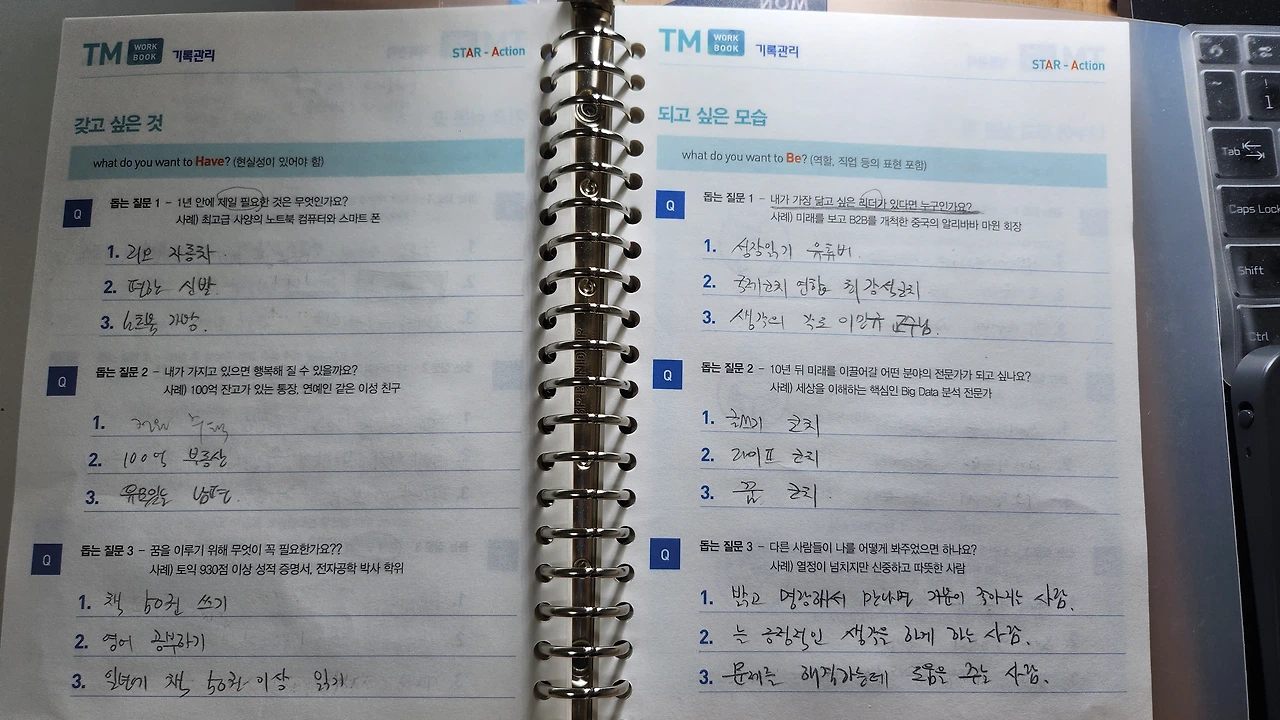 TM WORK BOOK 기록관리
STAR - Action
갖고 싶은 것
what do you want to Have? (현실성이 있어야 함)
Q
돕는 질문 1 - 1년 안에 제일 필요한 것은 무엇인가요?
사례) 최고급 사양의 노트북 컴퓨터와 스마트 폰
1. 자동차
2. 편한 신발
3. 가방
Q
돕는 질문 2 - 내가 가지고 있으면 행복해 질 수 있을까요?
사례) 100억 잔고가 있는 통장, 연예인 같은 이성 친구
1. 전원 주택
2. 100억 부동산
3. 남편
Q
돕는 질문 3 - 꿈을 이루기 위해 무엇이 꼭 필요한가요??
사례) 토익 930점 이상 성적 증명서, 전자공학 박사 학위
1. 책 50권 쓰기
2. 영어 공부하기
3. 일년기 책 50권 이상 읽기
TM WORK BOOK 기록관리
STAR - Action
되고 싶은 모습
what do you want to Be? (역할, 직업 등의 표현 포함)
Q
돕는 질문 1 - 내가 가장 닮고 싶은 리더가 있다면 누구인가요?
사례) 미래를 보고 B2B를 개척한 중국의 알리바바 마윈 회장
1. 유튜버
2. 국제코치 연합 최강석코치
3. 생각의 각도 이민규 교수님
Q
돕는 질문 2 - 10년 뒤 미래를 이끌어갈 어떤 분야의 전문가가 되고 싶나요?
사례) 세상을 이해하는 핵심인 Big Data 분석 전문가
1. 글쓰기 코치
2. 라이프 코치
3. 꿈 코치
Q
돕는 질문 3 - 다른 사람들이 나를 어떻게 봐주었으면 하나요?
사례) 열정이 넘치지만 신중하고 따뜻한 사람
1. 밝고 명랑해서 만나면 기운이 좋아지는 사람.
2. 늘 긍정적인 생각을 하게 하는 사람.
3. 문제를 해결하는데 도움을 주는 사람.
Tab
Caps Lock
Shift
Ctrl